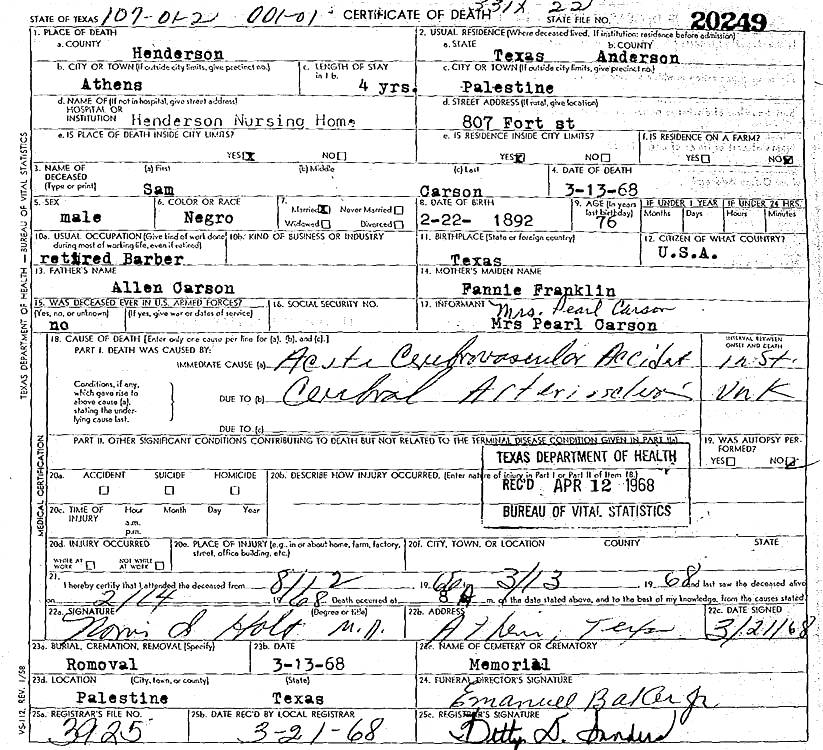 STATE OF TEXAS 107-01-2 001-01 CERTIFICATE OF DEATH 331X 22 STATE FILE NO. 20249
1. PLACE OF DEATH
a. COUNTY
Henderson
2. USUAL RESIDENCE (Where deceased lived. If institution: residence before admission)
a. STATE b. COUNTY
Texas Anderson
b. CITY OR TOWN (If outside city limits, give precinct no.)
Athens
c. LENGTH OF STAY in 1 b.
4 yrs.
c. CITY OR TOWN (If outside city limits, give precinct no.)
Palestine
d. NAME OF (If not in hospital, give street address)
HOSPITAL OR
INSTITUTION Henderson Nursing Home
d. STREET ADDRESS (If rural, give location)
807 Fort st
e. IS PLACE OF DEATH INSIDE CITY LIMITS?
YES X NO
e. IS RESIDENCE INSIDE CITY LIMITS?
YES X NO
f. IS RESIDENCE ON A FARM?
YES NO X
3. NAME OF DECEASED (Type or print)
(a) First (b) Middle (c) Last
Sam Carson
4. DATE OF DEATH
3-13-68
5. SEX
male
6. COLOR OR RACE
Negro
7.
Married X Never Married
Widowed Divorced
8. DATE OF BIRTH
2-22- 1892
9. AGE (In years last birthday)
76
IF UNDER 1 YEAR
Months Days
IF UNDER 24 HRS.
Hours Minutes
10a. USUAL OCCUPATION (Give kind of work done during most of working life, even if retired)
retired Barber
10b. KIND OF BUSINESS OR INDUSTRY
11. BIRTHPLACE (State or foreign country)
Texas
12. CITIZEN OF WHAT COUNTRY?
U.S.A.
13. FATHER'S NAME
Allen Carson
14. MOTHER'S MAIDEN NAME
Fannie Franklin
15. WAS DECEASED EVER IN U.S. ARMED FORCES?
(Yes, no, or unknown) (If yes, give war or dates of service)
no
16. SOCIAL SECURITY NO.
17. INFORMANT
Mrs. Pearl Carson
Mrs Pearl Carson
18. CAUSE OF DEATH [Enter only one cause per line for (a), (b), and (c).]
INTERVAL BETWEEN ONSET AND DEATH
PART I. DEATH WAS CAUSED BY:
IMMEDIATE CAUSE (a) Acute Cerebrovascular Accident inst.
Conditions, if any, which gave rise to above cause (a), stating the underlying cause last.
DUE TO (b) Cerebral Arteriosclerosis Unk
DUE TO (c)
PART II. OTHER SIGNIFICANT CONDITIONS CONTRIBUTING TO DEATH BUT NOT RELATED TO THE TERMINAL DISEASE CONDITION GIVEN IN PART I(a)
19. WAS AUTOPSY PERFORMED?
YES NO
20a. ACCIDENT SUICIDE HOMICIDE
20b. DESCRIBE HOW INJURY OCCURRED. (Enter nature of injury in Part I or Part II of item 18.)
TEXAS DEPARTMENT OF HEALTH
REC'D APR 12 1968
BUREAU OF VITAL STATISTICS
20c. TIME OF INJURY
Hour Month Day Year
a.m.
p.m.
20d. INJURY OCCURRED
WHILE AT WORK NOT WHILE AT WORK
20e. PLACE OF INJURY (e.g., in or about home, farm, factory, street, office building, etc.)
20f. CITY, TOWN, OR LOCATION COUNTY STATE
21. I hereby certify that I attended the deceased from 8/12 19 3/13 19 68 and last saw the deceased alive
on 2/14 1968 Death occurred at 8 m. of the date stated above, and to the best of my knowledge, from the causes stated
22a. SIGNATURE (Degree or title)
Holt M.D.
22b. ADDRESS
Athens, Texas
22c. DATE SIGNED
3/21/68
23a. BURIAL, CREMATION, REMOVAL (Specify)
Romoval
23b. DATE
3-13-68
23c. NAME OF CEMETERY OR CREMATORY
Memorial
23d. LOCATION (City, town, or county) (State)
Palestine Texas
24. FUNERAL DIRECTOR'S SIGNATURE
Emanuel Baker Jr
25a. REGISTRAR'S FILE NO.
3925
25b. DATE REC'D BY LOCAL REGISTRAR
3-21-68
25c. REGISTRAR'S SIGNATURE
Betty D. Sanders
TEXAS DEPARTMENT OF HEALTH — BUREAU OF VITAL STATISTICS
MEDICAL CERTIFICATION
VS-112, REV. 1/58